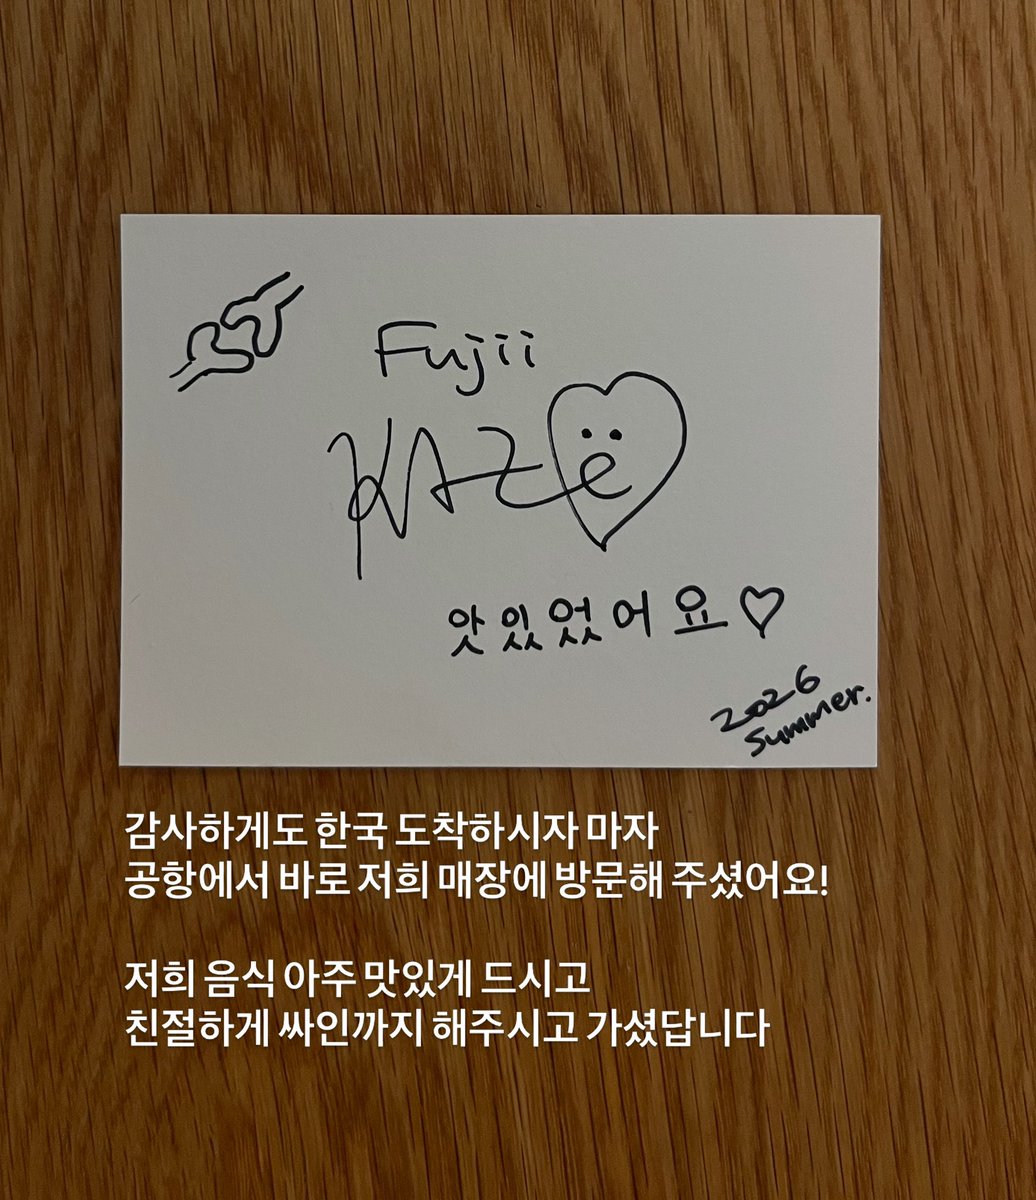 Fujii
KAZe
앗있었어요♡
2026
Summer.
감사하게도 한국 도착하시자 마자
공항에서 바로 저희 매장에 방문해 주셨어요!
저희 음식 아주 맛있게 드시고
친절하게 싸인까지 해주시고 가셨답니다